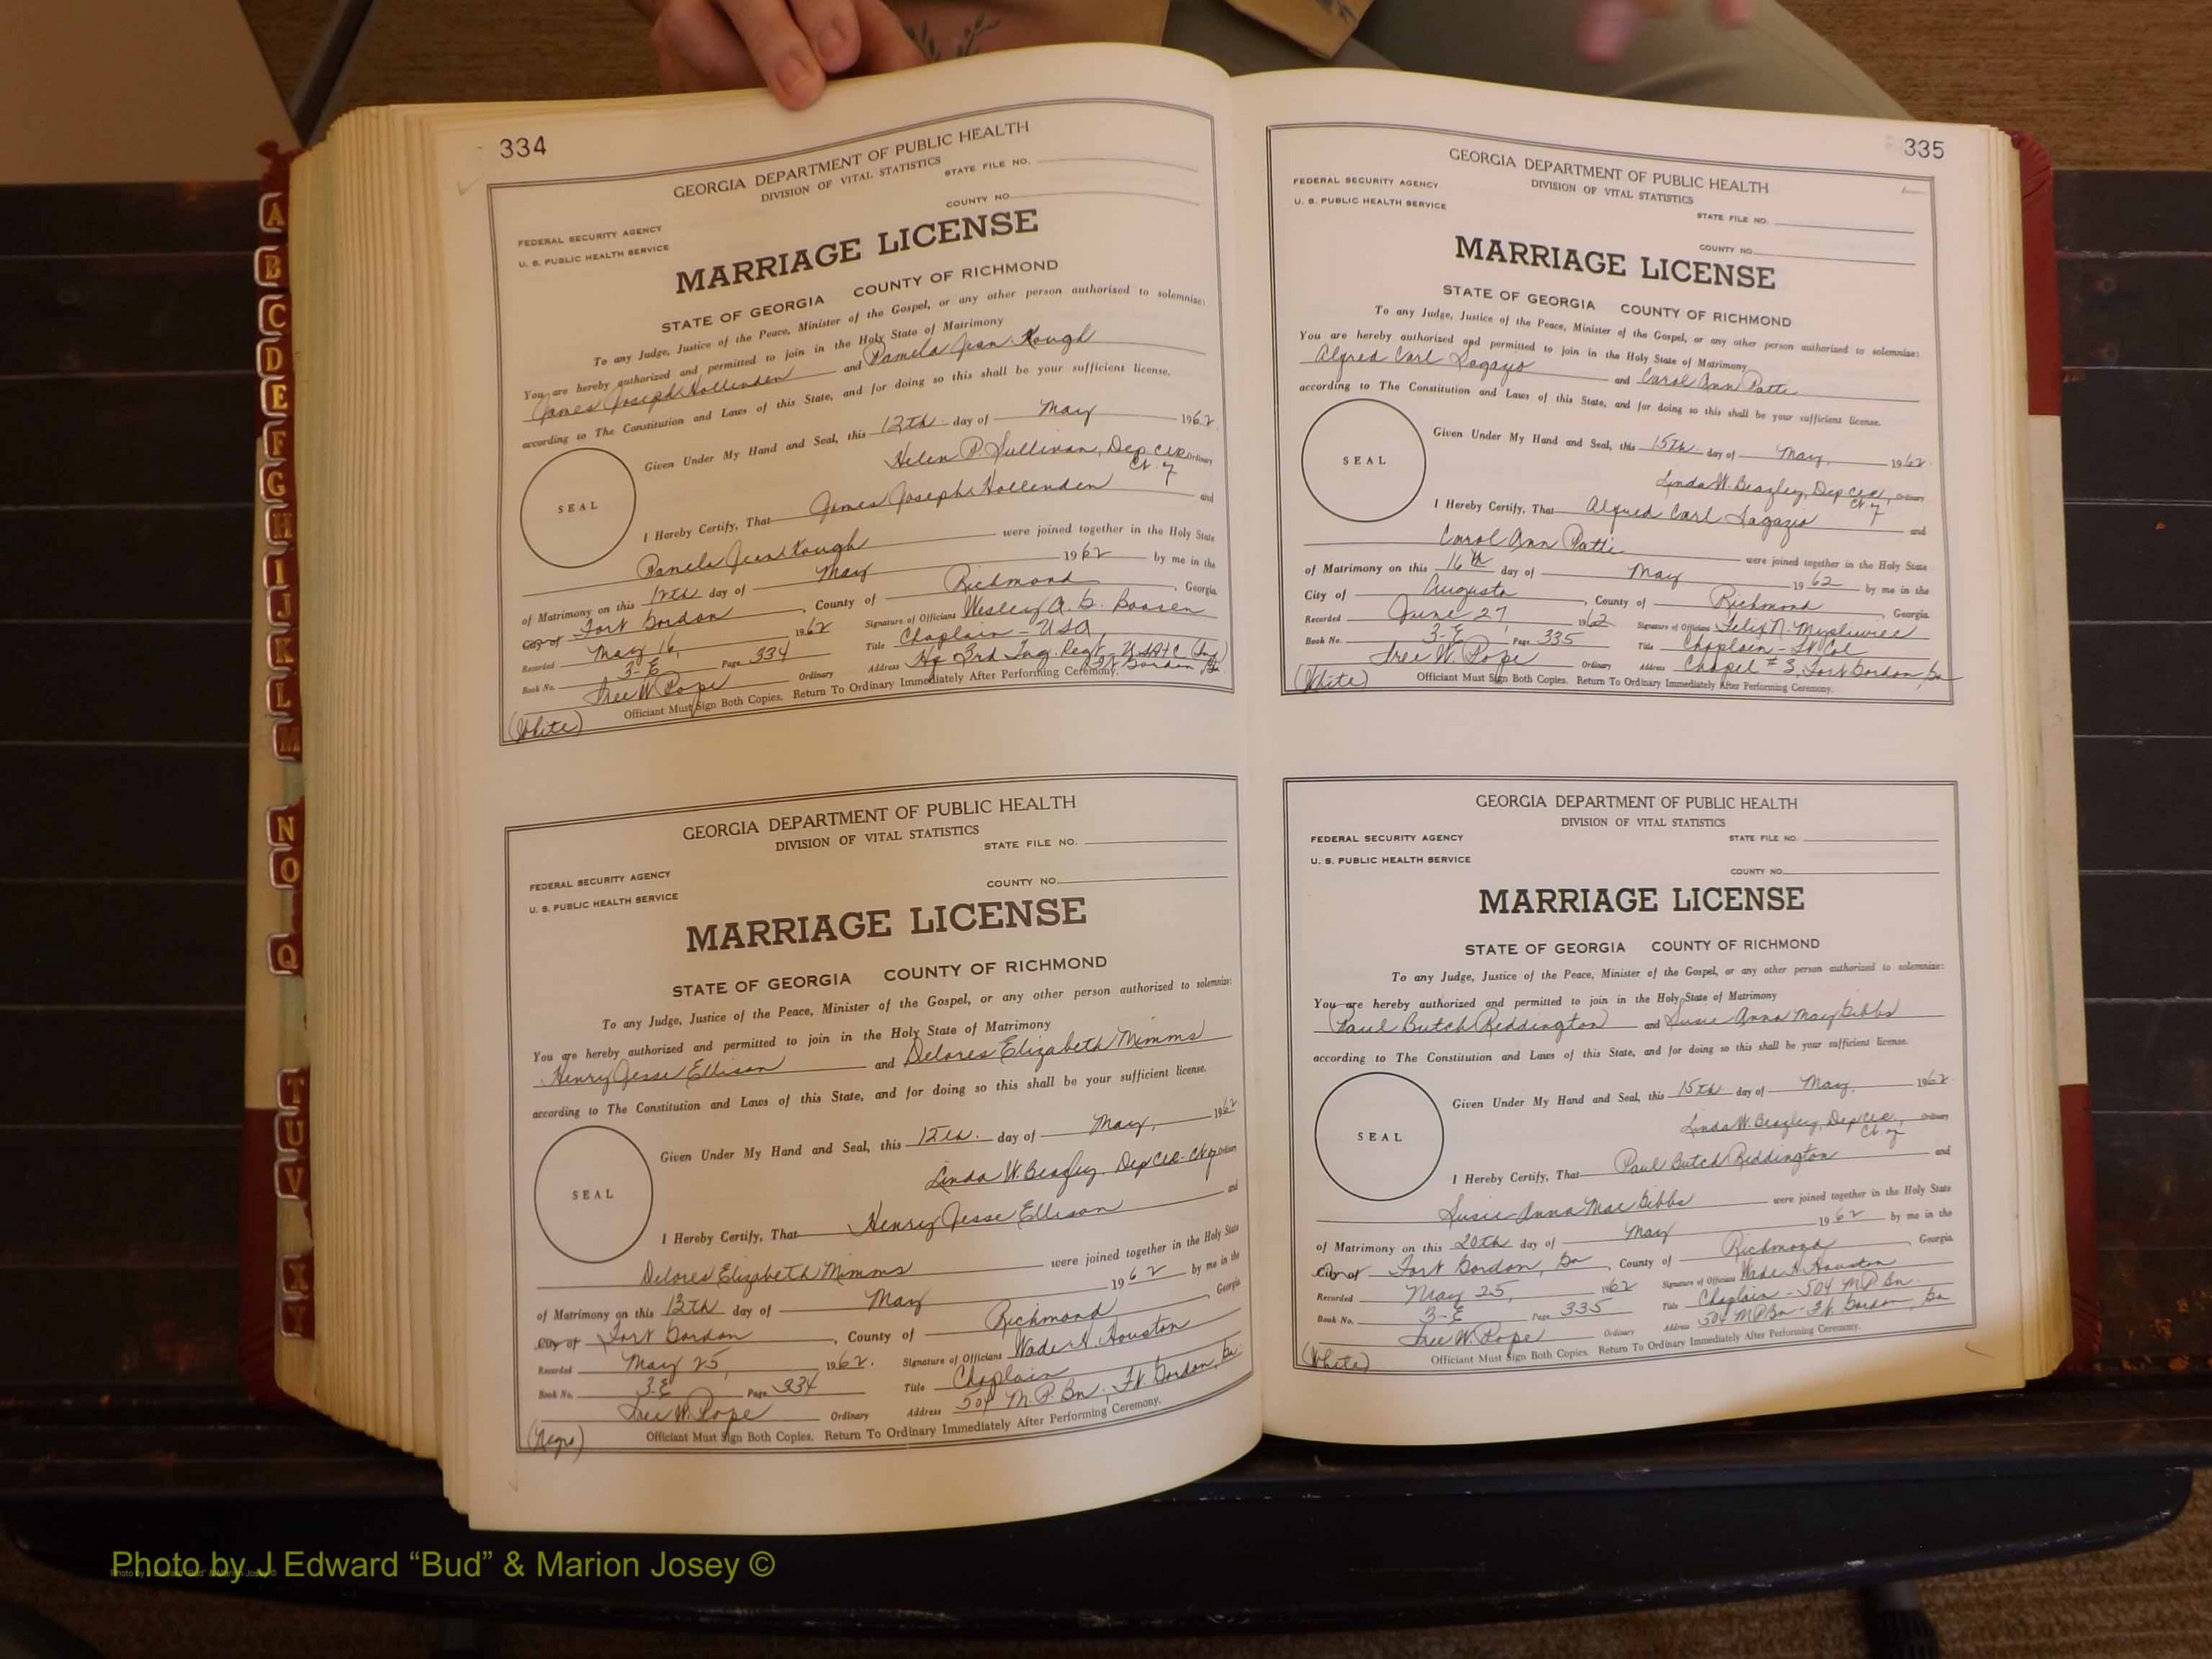 334
GEORGIA DEPARTMENT OF PUBLIC HEALTH
DIVISION OF VITAL STATISTICS
STATE FILE NO.
COUNTY NO.
FEDERAL SECURITY AGENCY
U. S. PUBLIC HEALTH SERVICE
MARRIAGE LICENSE
STATE OF GEORGIA COUNTY OF RICHMOND
To any Judge, Justice of the Peace, Minister of the Gospel, or any other person authorized to solemnize:
You are hereby authorized and permitted to join in the Holy State of Matrimony
James Joseph Hollenden and Pamela Jean Kough
according to The Constitution and Laws of this State, and for doing so this shall be your sufficient license.
SEAL
Given Under My Hand and Seal, this 12th day of May 1962
Helen P. Sullivan, Dep. Clk Ordinary
Ct. of
I Hereby Certify, That James Joseph Hollenden and
Pamela Jean Kough were joined together in the Holy State
of Matrimony on this 12th day of May 1962 by me in the
City of Fort Gordon, County of Richmond, Georgia.
Recorded May 16, 1962 Signature of Officiant Wesley G. Boosen
Book No. 3-E Page 334 Title Chaplain - USA
Tree W. Pope Ordinary Address Hq 3rd Tng. Regt - USATC Ft Gordon, Ga.
(White) Officiant Must Sign Both Copies. Return To Ordinary Immediately After Performing Ceremony.
GEORGIA DEPARTMENT OF PUBLIC HEALTH
DIVISION OF VITAL STATISTICS
STATE FILE NO.
FEDERAL SECURITY AGENCY
U. S. PUBLIC HEALTH SERVICE
COUNTY NO.
MARRIAGE LICENSE
STATE OF GEORGIA COUNTY OF RICHMOND
To any Judge, Justice of the Peace, Minister of the Gospel, or any other person authorized to solemnize:
You are hereby authorized and permitted to join in the Holy State of Matrimony
Henry Jesse Ellison and Delores Elizabeth Mimms
according to The Constitution and Laws of this State, and for doing so this shall be your sufficient license.
SEAL
Given Under My Hand and Seal, this 12th. day of May, 1962
Linda W. Beazley, Dep Clk - Ct of Ordinary
I Hereby Certify, That Henry Jesse Ellison and
Delores Elizabeth Mimms were joined together in the Holy State
of Matrimony on this 13th day of May 1962 by me in the
City of Fort Gordon, County of Richmond Georgia
Recorded May 25, 1962. Signature of Officiant Wade H. Houston
Book No. 3-E Page 334 Title Chaplain
Tree W. Pope Ordinary Address 504 M.P. Bn, Ft. Gordon, Ga.
(Negro) Officiant Must Sign Both Copies. Return To Ordinary Immediately After Performing Ceremony.
335
GEORGIA DEPARTMENT OF PUBLIC HEALTH
DIVISION OF VITAL STATISTICS
FEDERAL SECURITY AGENCY
U. S. PUBLIC HEALTH SERVICE
STATE FILE NO.
COUNTY NO.
MARRIAGE LICENSE
STATE OF GEORGIA COUNTY OF RICHMOND
To any Judge, Justice of the Peace, Minister of the Gospel, or any other person authorized to solemnize:
You are hereby authorized and permitted to join in the Holy State of Matrimony
Alfred Carl Lagazo and Carol Ann Patti
according to The Constitution and Laws of this State, and for doing so this shall be your sufficient license.
SEAL
Given Under My Hand and Seal, this 15th day of May, 1962
Linda W. Beazley, Dep Clk, Ordinary
Ct. of
I Hereby Certify, That Alfred Carl and
Carol Ann Patti were joined together in the Holy State
of Matrimony on this 16th day of May 1962 by me in the
City of Augusta, County of Richmond, Georgia.
Recorded June 27, 1962 Signature of Officiant Felix N. Mysliwiec
Book No. 3-E Page 335 Title Chaplain - Lt Col
Tree W. Pope Ordinary Address Chapel #3, Fort Gordon, Ga
(White) Officiant Must Sign Both Copies. Return To Ordinary Immediately After Performing Ceremony.
GEORGIA DEPARTMENT OF PUBLIC HEALTH
DIVISION OF VITAL STATISTICS
FEDERAL SECURITY AGENCY STATE FILE NO.
U. S. PUBLIC HEALTH SERVICE
COUNTY NO.
MARRIAGE LICENSE
STATE OF GEORGIA COUNTY OF RICHMOND
To any Judge, Justice of the Peace, Minister of the Gospel, or any other person authorized to solemnize:
You are hereby authorized and permitted to join in the Holy State of Matrimony
Paul Butch Reddington and Susie Anna May Gibbs
according to The Constitution and Laws of this State, and for doing so this shall be your sufficient license.
SEAL
Given Under My Hand and Seal, this 15th day of May, 1962
Linda W. Beazley, Dep Clk, Ordinary
Ct. of
I Hereby Certify, That Paul Butch Reddington and
Susie Anna Mae Gibbs were joined together in the Holy State
of Matrimony on this 20th day of May 1962 by me in the
City of Fort Gordon, Ga, County of Richmond, Georgia.
Recorded May 25, 1962 Signature of Officiant Wade H. Houston
Book No. 3-E Page 335 Title Chaplain - 504 M P Bn.
Tree W. Pope Ordinary Address 504 MP Bn - Ft. Gordon, Ga
(White) Officiant Must Sign Both Copies. Return To Ordinary Immediately After Performing Ceremony.
A
B
C
D
E
F
G
H
I
J
K
L
M
N
O
Q
T
U
V
Photo by J Edward “Bud” & Marion Josey ©
Photo by J Edward “Bud” & Marion Josey ©